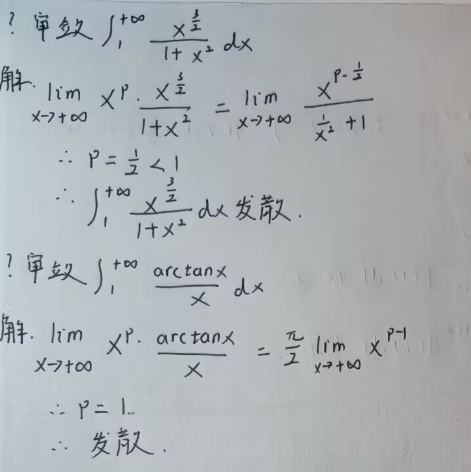 ? 审敛 ∫₁^{+∞} x^{3/2}/(1+x²) dx
解. lim_{x→+∞} x^p · x^{3/2}/(1+x²) = lim_{x→+∞} x^{p-1/2}/(1/x²+1)
∴ p = 1/2 < 1
∴ ∫₁^{+∞} x^{3/2}/(1+x²) dx 发散.
? 审敛 ∫₁^{+∞} arctanx/x dx
解. lim_{x→+∞} x^p · arctanx/x = π/2 lim_{x→+∞} x^{p-1}
∴ p = 1..
∴ 发散.